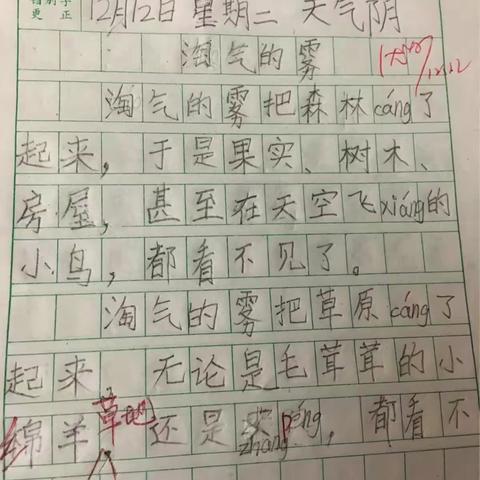 更正
12月12日 星期二 天气阴
淘气的雾
12.12
淘气的雾把森林cáng了
起来,于是果实、树木、
房屋,甚至在天空飞xiáng的
小鸟,都看不见了。
淘气的雾把草原cáng了
起来 无论是毛茸茸的小
绵羊 草地 还是 péng,都看不
zhàng